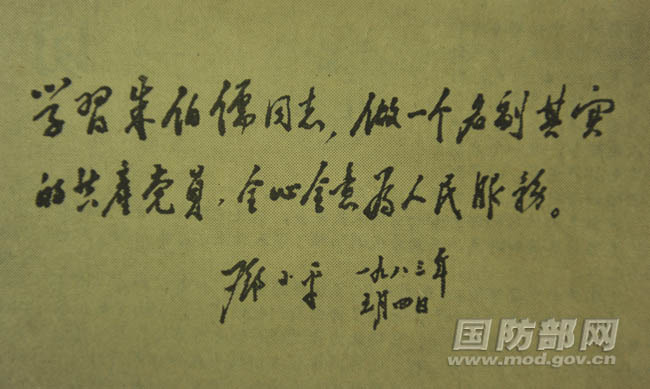 学習朱伯儒同志，做一个名副其实
的共產党員，全心全意为人民服務。
鄧小平 一九八三年
五月四日
国防部网
www.mod.gov.cn